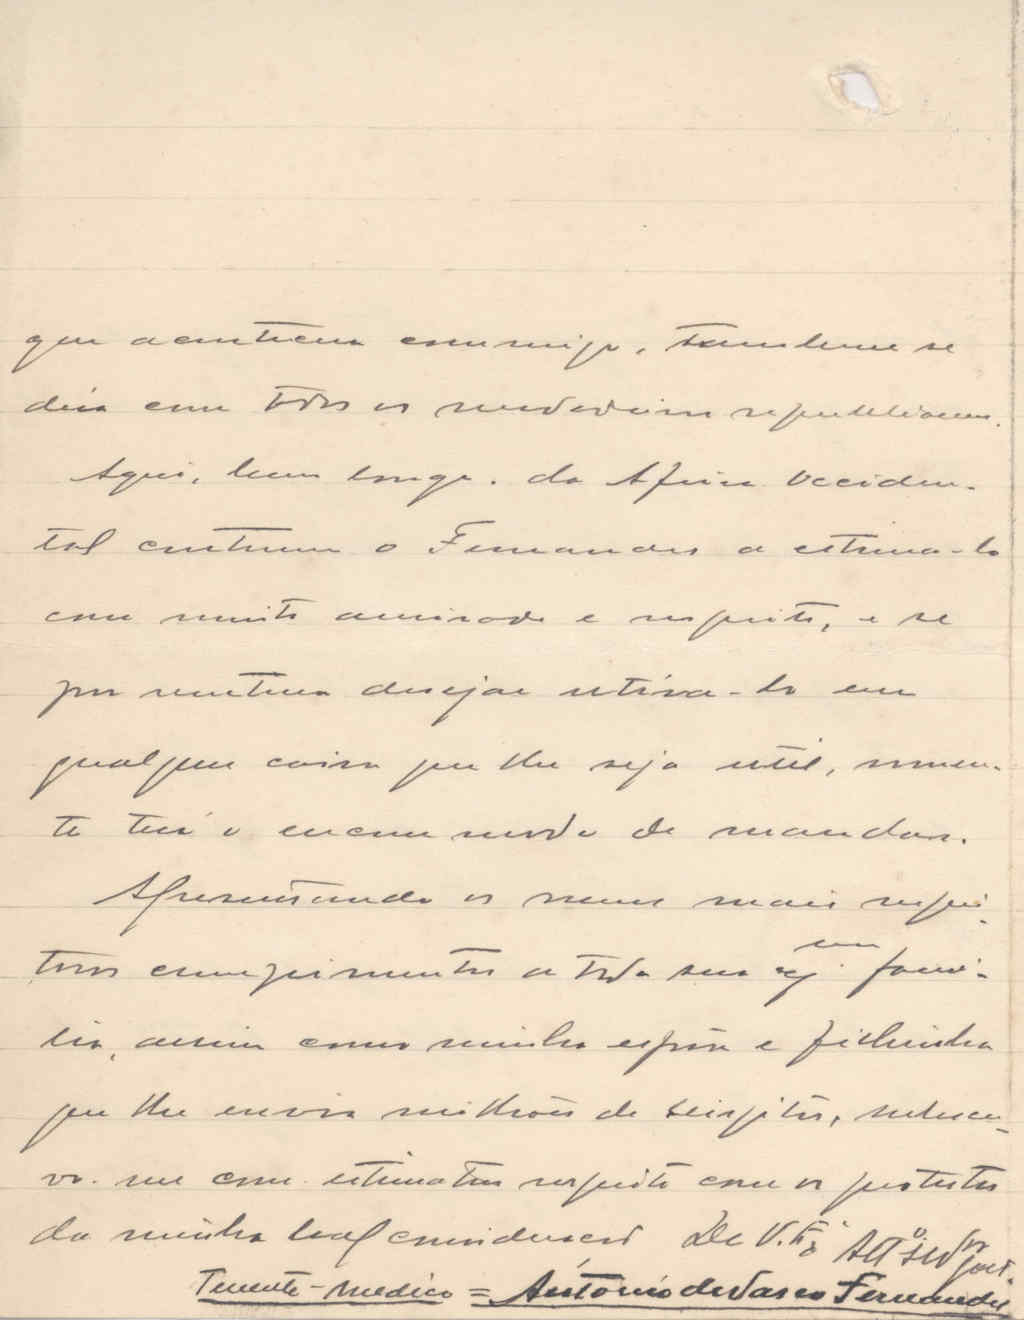 que aconteceu commigo, tambem se
dêra com todos os verdadeiros republicanos.
Aqui, bem longe, da Africa Occiden-
tal continua o Fernandes a estima-lo
com muita amisade e respeito, e se
por ventura desejar utilisa-lo em
qualquer coisa que lhe seja util, somen-
te terá o encommodo de mandar.
Apresentando os meus mais respei-
tosos cumprimentos a toda sua Ex.ma fami-
lia, assim como minha esposa e filhinha
que lhe envia milhões de beijitos, subscre-
vo-me com estima e respeito com os protestos
da minha leal consideração De V. Ex.a Att.o
Tenente-medico = António de Vasco Fernandes